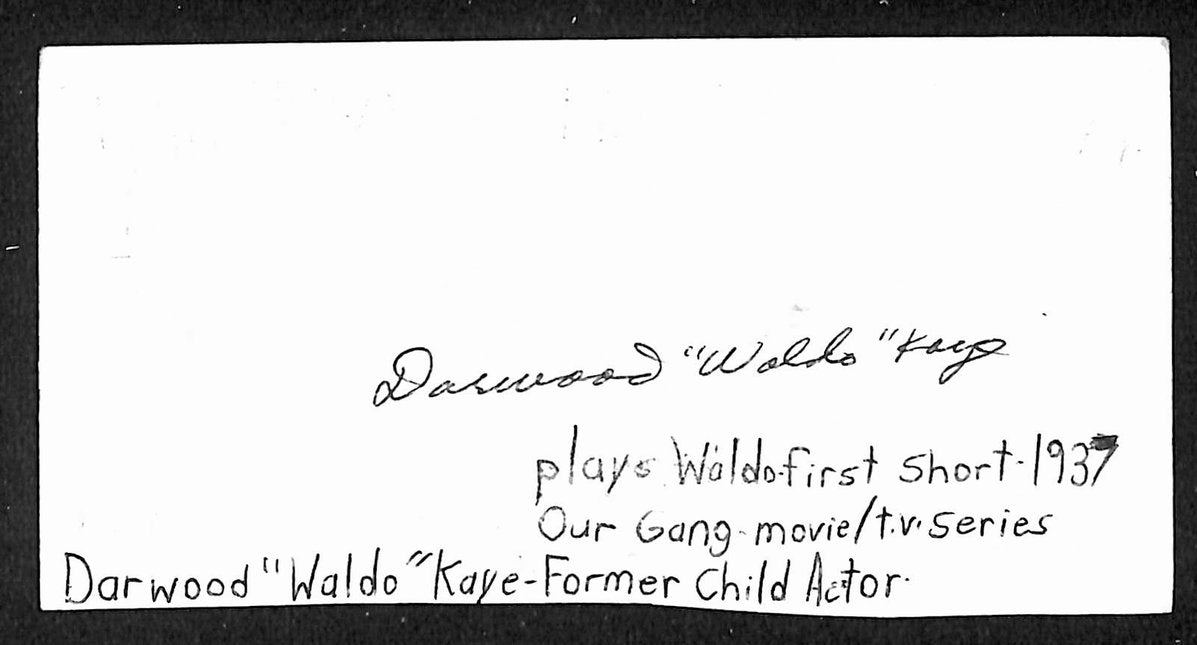 Darwood "Waldo" Kaye
plays Waldo-first short-1937
Our Gang-movie/t.v. series
Darwood "Waldo" Kaye-Former Child Actor.